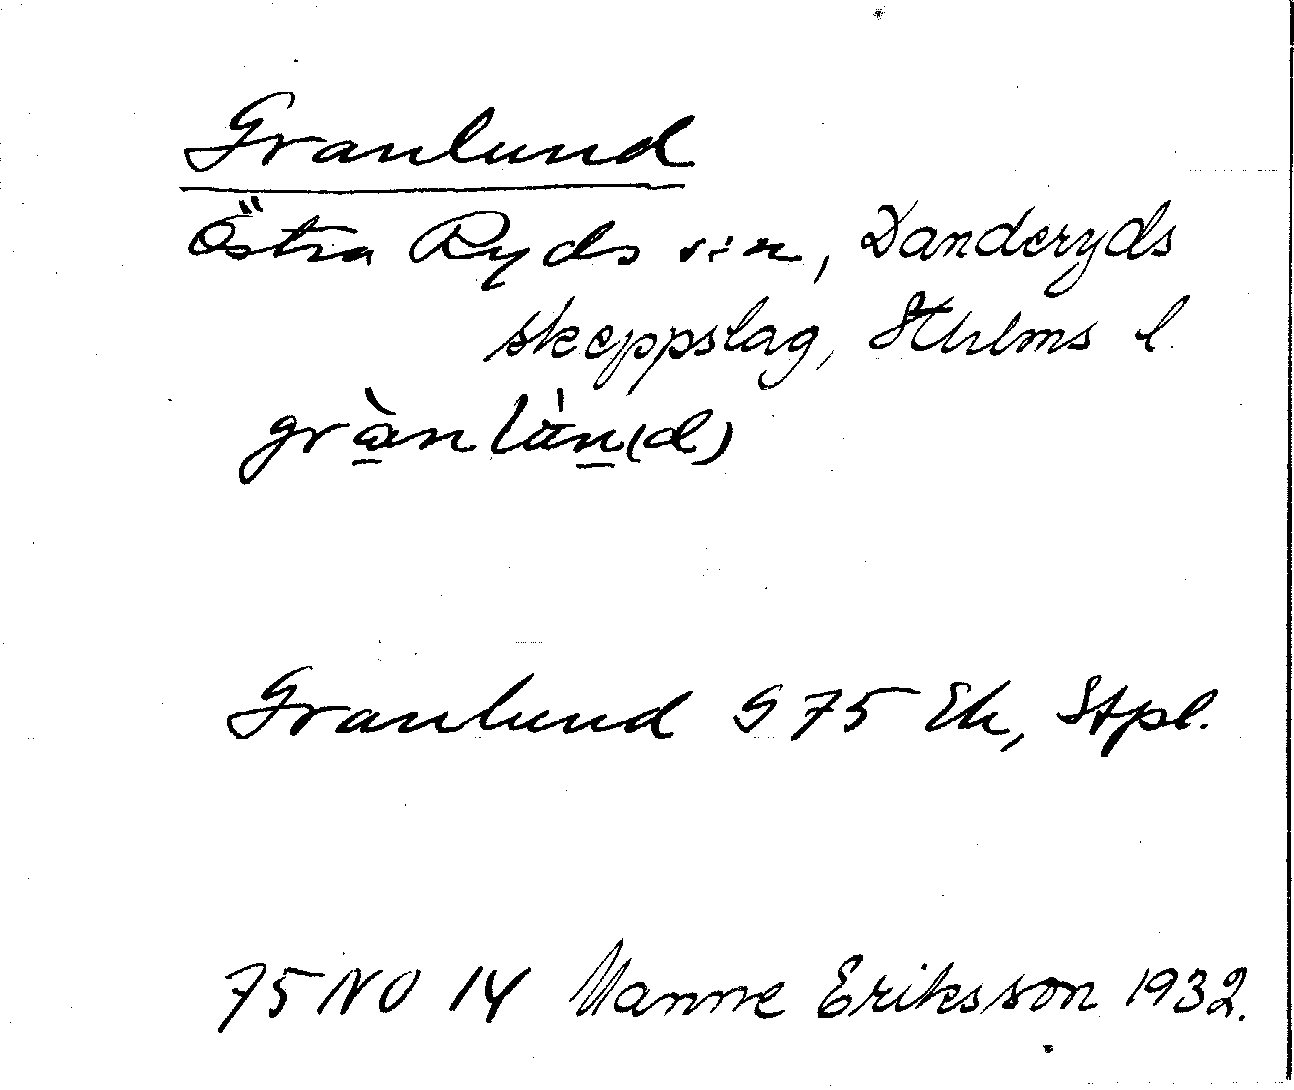 Granlund
Östra Ryds sn, Danderyds
skeppslag, Sthlms l
gràn lùn(d)
Granlund G 75 Ek, Stpl.
75 NO 14 Manne Eriksson 1932.